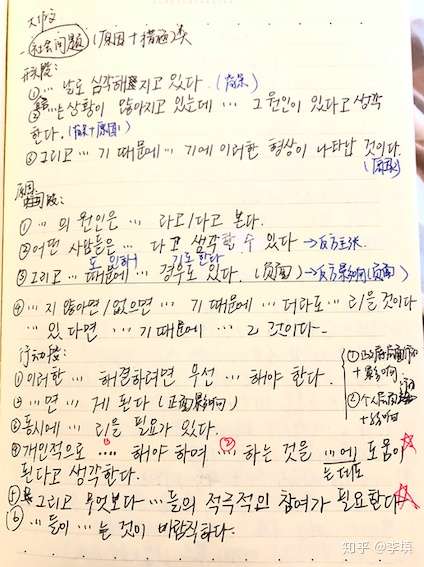 大作文
一. 社会问题 (原因+措施类
开头段:
① … 날로 심각해지고 있다. (背景)
② … 는 상황이 많아지고 있는데 … 그 원인이 있다고 생각
한다. (背景+原因1)
③ 그리고 … 기 때문에 … 기에 이러한 현상이 나타난 것이다.
(原因2)
原因段:
① … 의 원인은 … 라고/다고 본다.
② 어떤 사람들은 … 다고 생각할 수 있다 → 反方主张.
로 인해서 기도 한다
③ 그리고 … 때문에 … 경우도 있다. (负面) → 反方影响(负面)
④ … 지 않아면/없으면 … 기 때문에 … 더라도 … ㄹ 것이다
… 있다면 … 기 때문에 … ㄹ 것이다.
行动段:
① 이러한 … 해결하려면 우선 … 해야 한다.
② … 면 … 게 된다 (正面影响)
③ 동시에 … ㄹ 필요가 있다.
① 政府层面
+ 影响
② 个人层面
+ 影响
④ 개인적으로 … 해야 하며 ② … 하는 것을 …에 도움이
는데도
된다고 생각한다.
⑤ 그리고 무엇보다 …들의 적극적인 참여가 필요한다
⑥ …들이 … 는 것이 바람직하다.
知乎 @李填